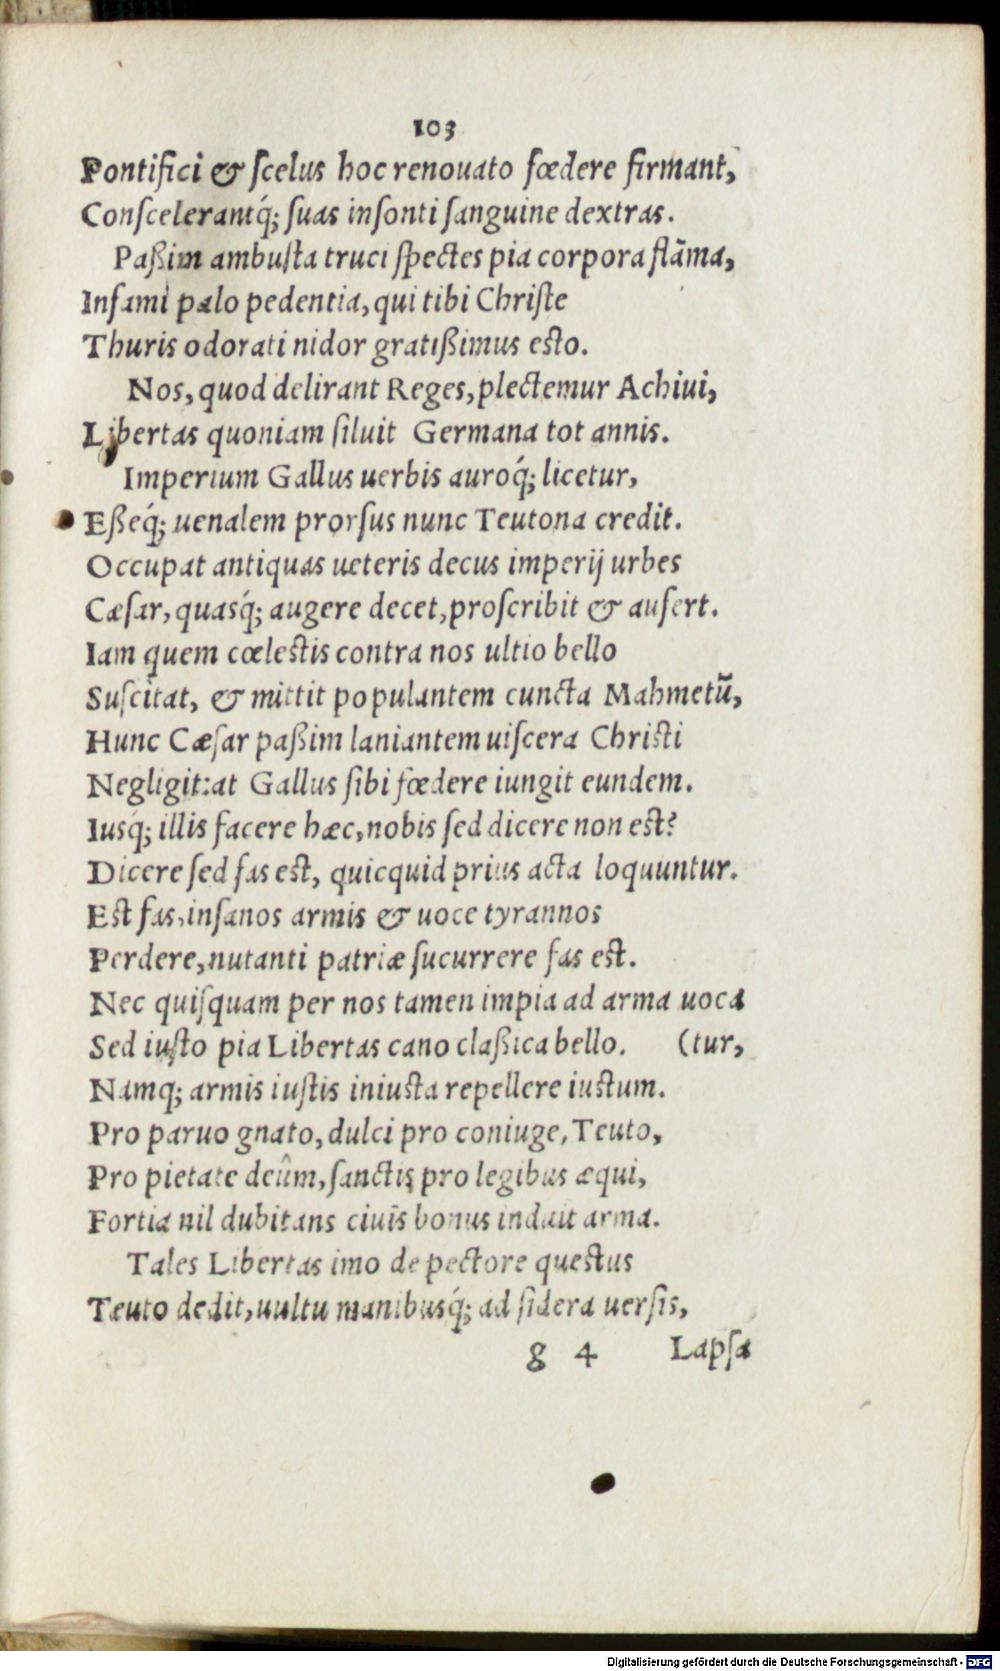 103
Pontifici & ſcelus hoc renouato fœdere firmant,
Conſcelerantq́; ſuas inſonti ſanguine dextras.
Paßim ambuſta truci ſpectes pia corpora flãma,
Infami palo pedentia, qui tibi Chriſte
Thuris odorati nidor gratißimus eſto.
Nos, quod delirant Reges, plectemur Achiui,
Libertas quoniam ſiluit Germana tot annis.
Imperium Gallus uerbis auroq́; licetur,
Eßeq́; uenalem prorſus nunc Teutona credit.
Occupat antiquas ueteris decus imperij urbes
Cæſar, quasq́; augere decet, proſcribit & aufert.
Iam quem cœleſtis contra nos ultio bello
Suſcitat, & mittit populantem cuncta Mahmetũ,
Hunc Cæſar paßim laniantem uiſcera Chriſti
Negligit: at Gallus ſibi fœdere iungit eundem.
Iusq́; illis facere hæc, nobis ſed dicere non eſt?
Dicere ſed fas eſt, quicquid prius acta loquuntur.
Eſt fas, inſanos armis & uoce tyrannos
Perdere, nutanti patriæ ſucurrere fas eſt.
Nec quiſquam per nos tamen impia ad arma uoca
Sed iuſto pia Libertas cano claßica bello. (tur,
Namq; armis iuſtis iniuſta repellere iuſtum.
Pro paruo gnato, dulci pro coniuge, Teuto,
Pro pietate deûm, ſanctis pro legibus æqui,
Fortia nil dubitans ciuis bonus induit arma.
Tales Libertas imo de pectore queſtus
Teuto dedit, uultu manibusq́; ad ſidera uerſis,
g 4 Lapſa
Digitalisierung gefördert durch die Deutsche Forschungsgemeinschaft - DFG